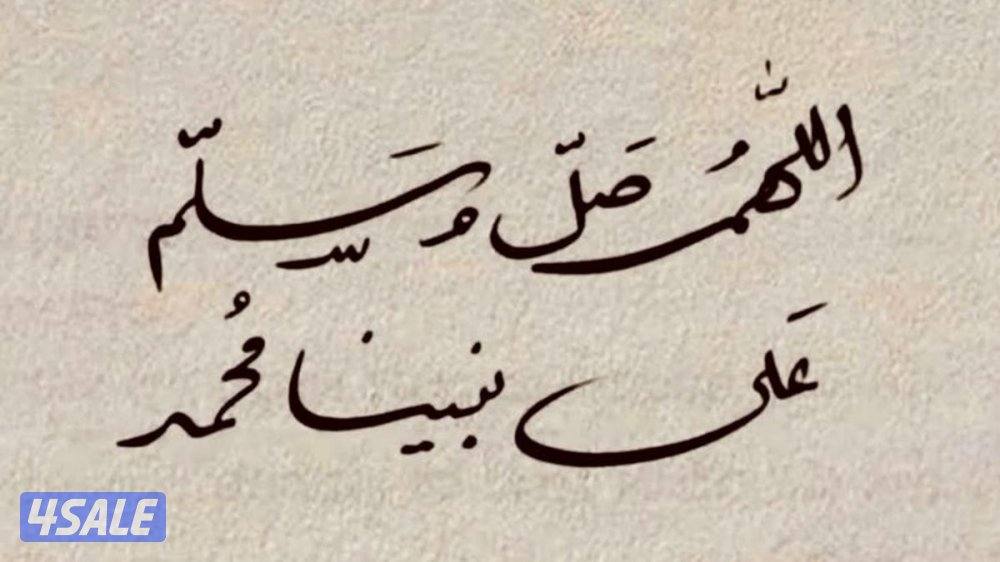 اللّٰهُمَّ صَلّ وَسَلّم
عَلى نبينا مُحمد
4SALE